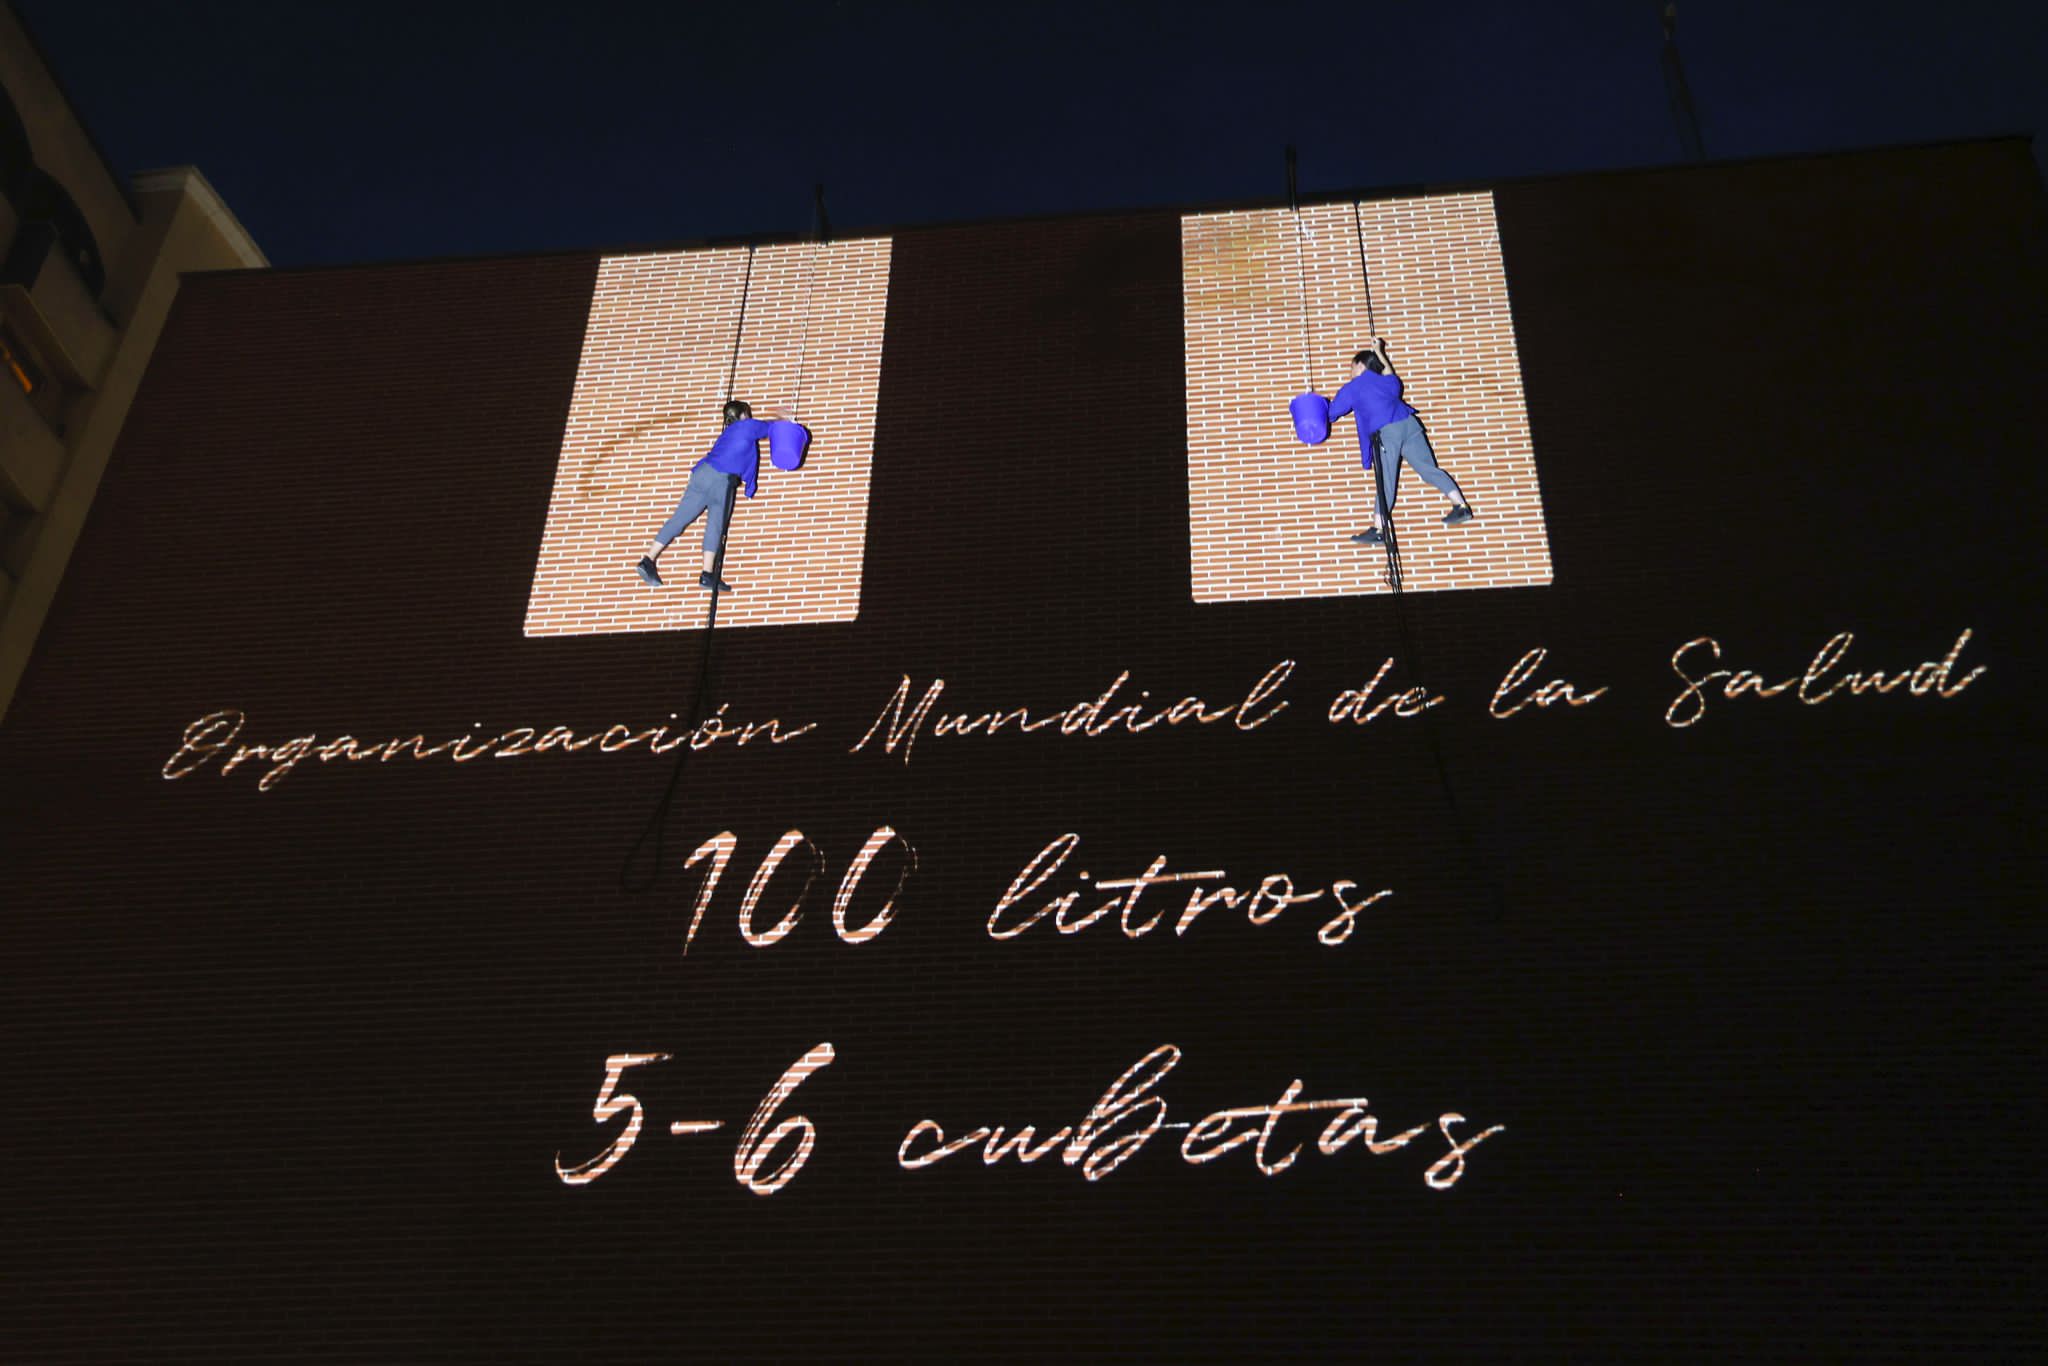 Organización Mundial de la Salud
100 litros
5-6 cubetas